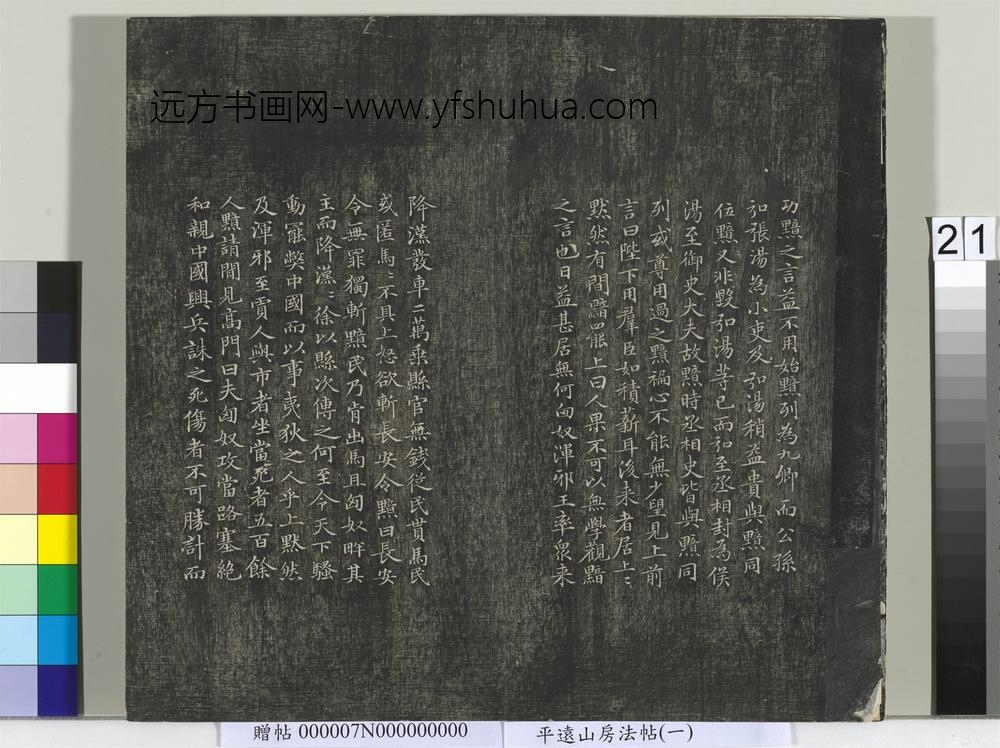 远方书画网-www.yfshuhua.com
功黯之言益不用始黯列為九卿而公孫
弘張湯為小吏及弘湯稍益貴與黯同
位黯又非毀弘湯等已而弘至丞相封為侯
湯至御史大夫故黯時丞相史皆與黯同
列或尊用過之黯褊心不能無少望見上前
言曰陛下用羣臣如積薪耳後来者居上上
黙然有間黯罷上曰人果不可以無學觀黯
之言也日益甚居無何匈奴渾邪王率衆来
降漢發車二萬乘縣官無錢從民貰馬民
或匿馬馬不具上怒欲斬長安令黯曰長安
令無罪獨斬黯民乃肯出馬且匈奴畔其
主而降漢漢徐以縣次傳之何至令天下騷
動罷獘中國而以事夷狄之人乎上黙然
及渾邪至賈人與市者坐當死者五百餘
人黯請間見高門曰夫匈奴攻當路塞絶
和親中國興兵誅之死傷者不可勝計而
21
贈帖 000007N000000000
平遠山房法帖(一)